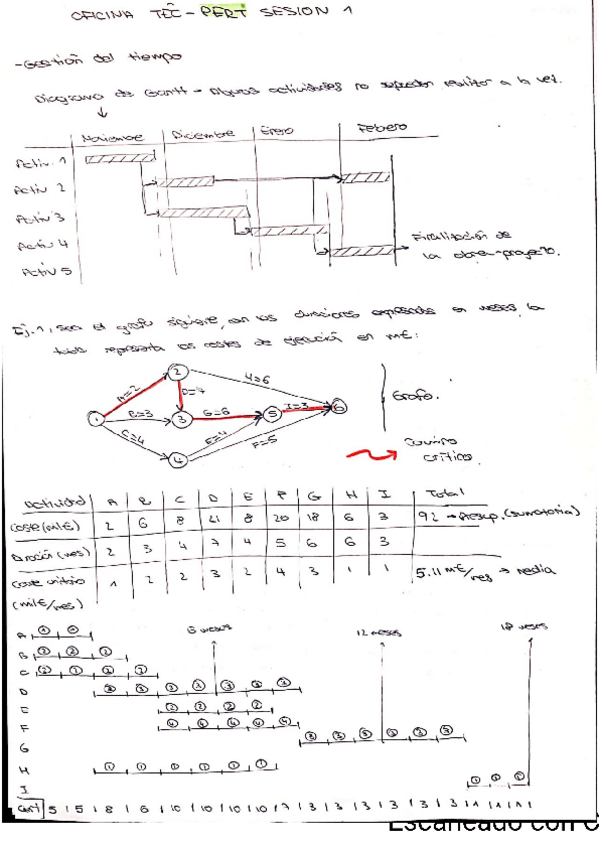 OFICINA TEC - PERT SESION 1
- Gestión del tiempo
Diagrama de Gantt - Algunas actividades no se pueden realizar a la vez.
Noviembre Diciembre Enero Febrero
Activ. 1
Activ 2
Activ 3
Activ 4
Activ 5
Finalización de
la obra-proyecto.
Ej. 1, sea el grafo siguiente, con las duraciones expresadas en meses, la
tabla representa los costes de ejecución en M€:
A=2 D=7 H=6
B=3 G=6 I=3
C=4 E=4 F=5
1 2 3 4 5 6
Grafo.
Camino
crítico
Actividad A B C D E F G H I Total
Coste (mil€) 2 6 8 21 8 20 18 6 3 92 → Presup. (sumatorio)
Duración (mes) 2 3 4 7 4 5 6 6 3
Coste unitario 1 2 2 3 2 4 3 1 1 5.11 M€/mes → media
(mil€/mes)
6 meses 12 meses 18 meses
A 1 1
B 2 2 2
C
D
E 2 2 2 2
F 4 4 4 4 4
G 3 3 3 3 3 3
H 1 1 1 1 1 1
I 1 1 1
Cost 5 5 8 6 10 10 10 10 7 3 3 3 3 3 3 1 1 1
Escaneado con C